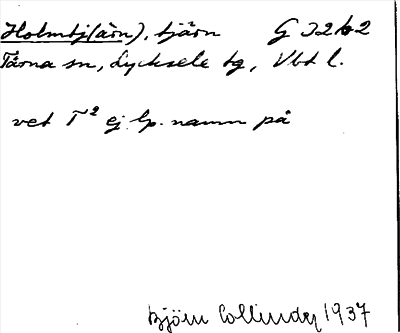 Holmtj(ärn), tjärn G 32 b 2
Tärna sn, Lycksele tg, Vbt l.
vet T² ej lp. namn på
Björn Collinder 1937